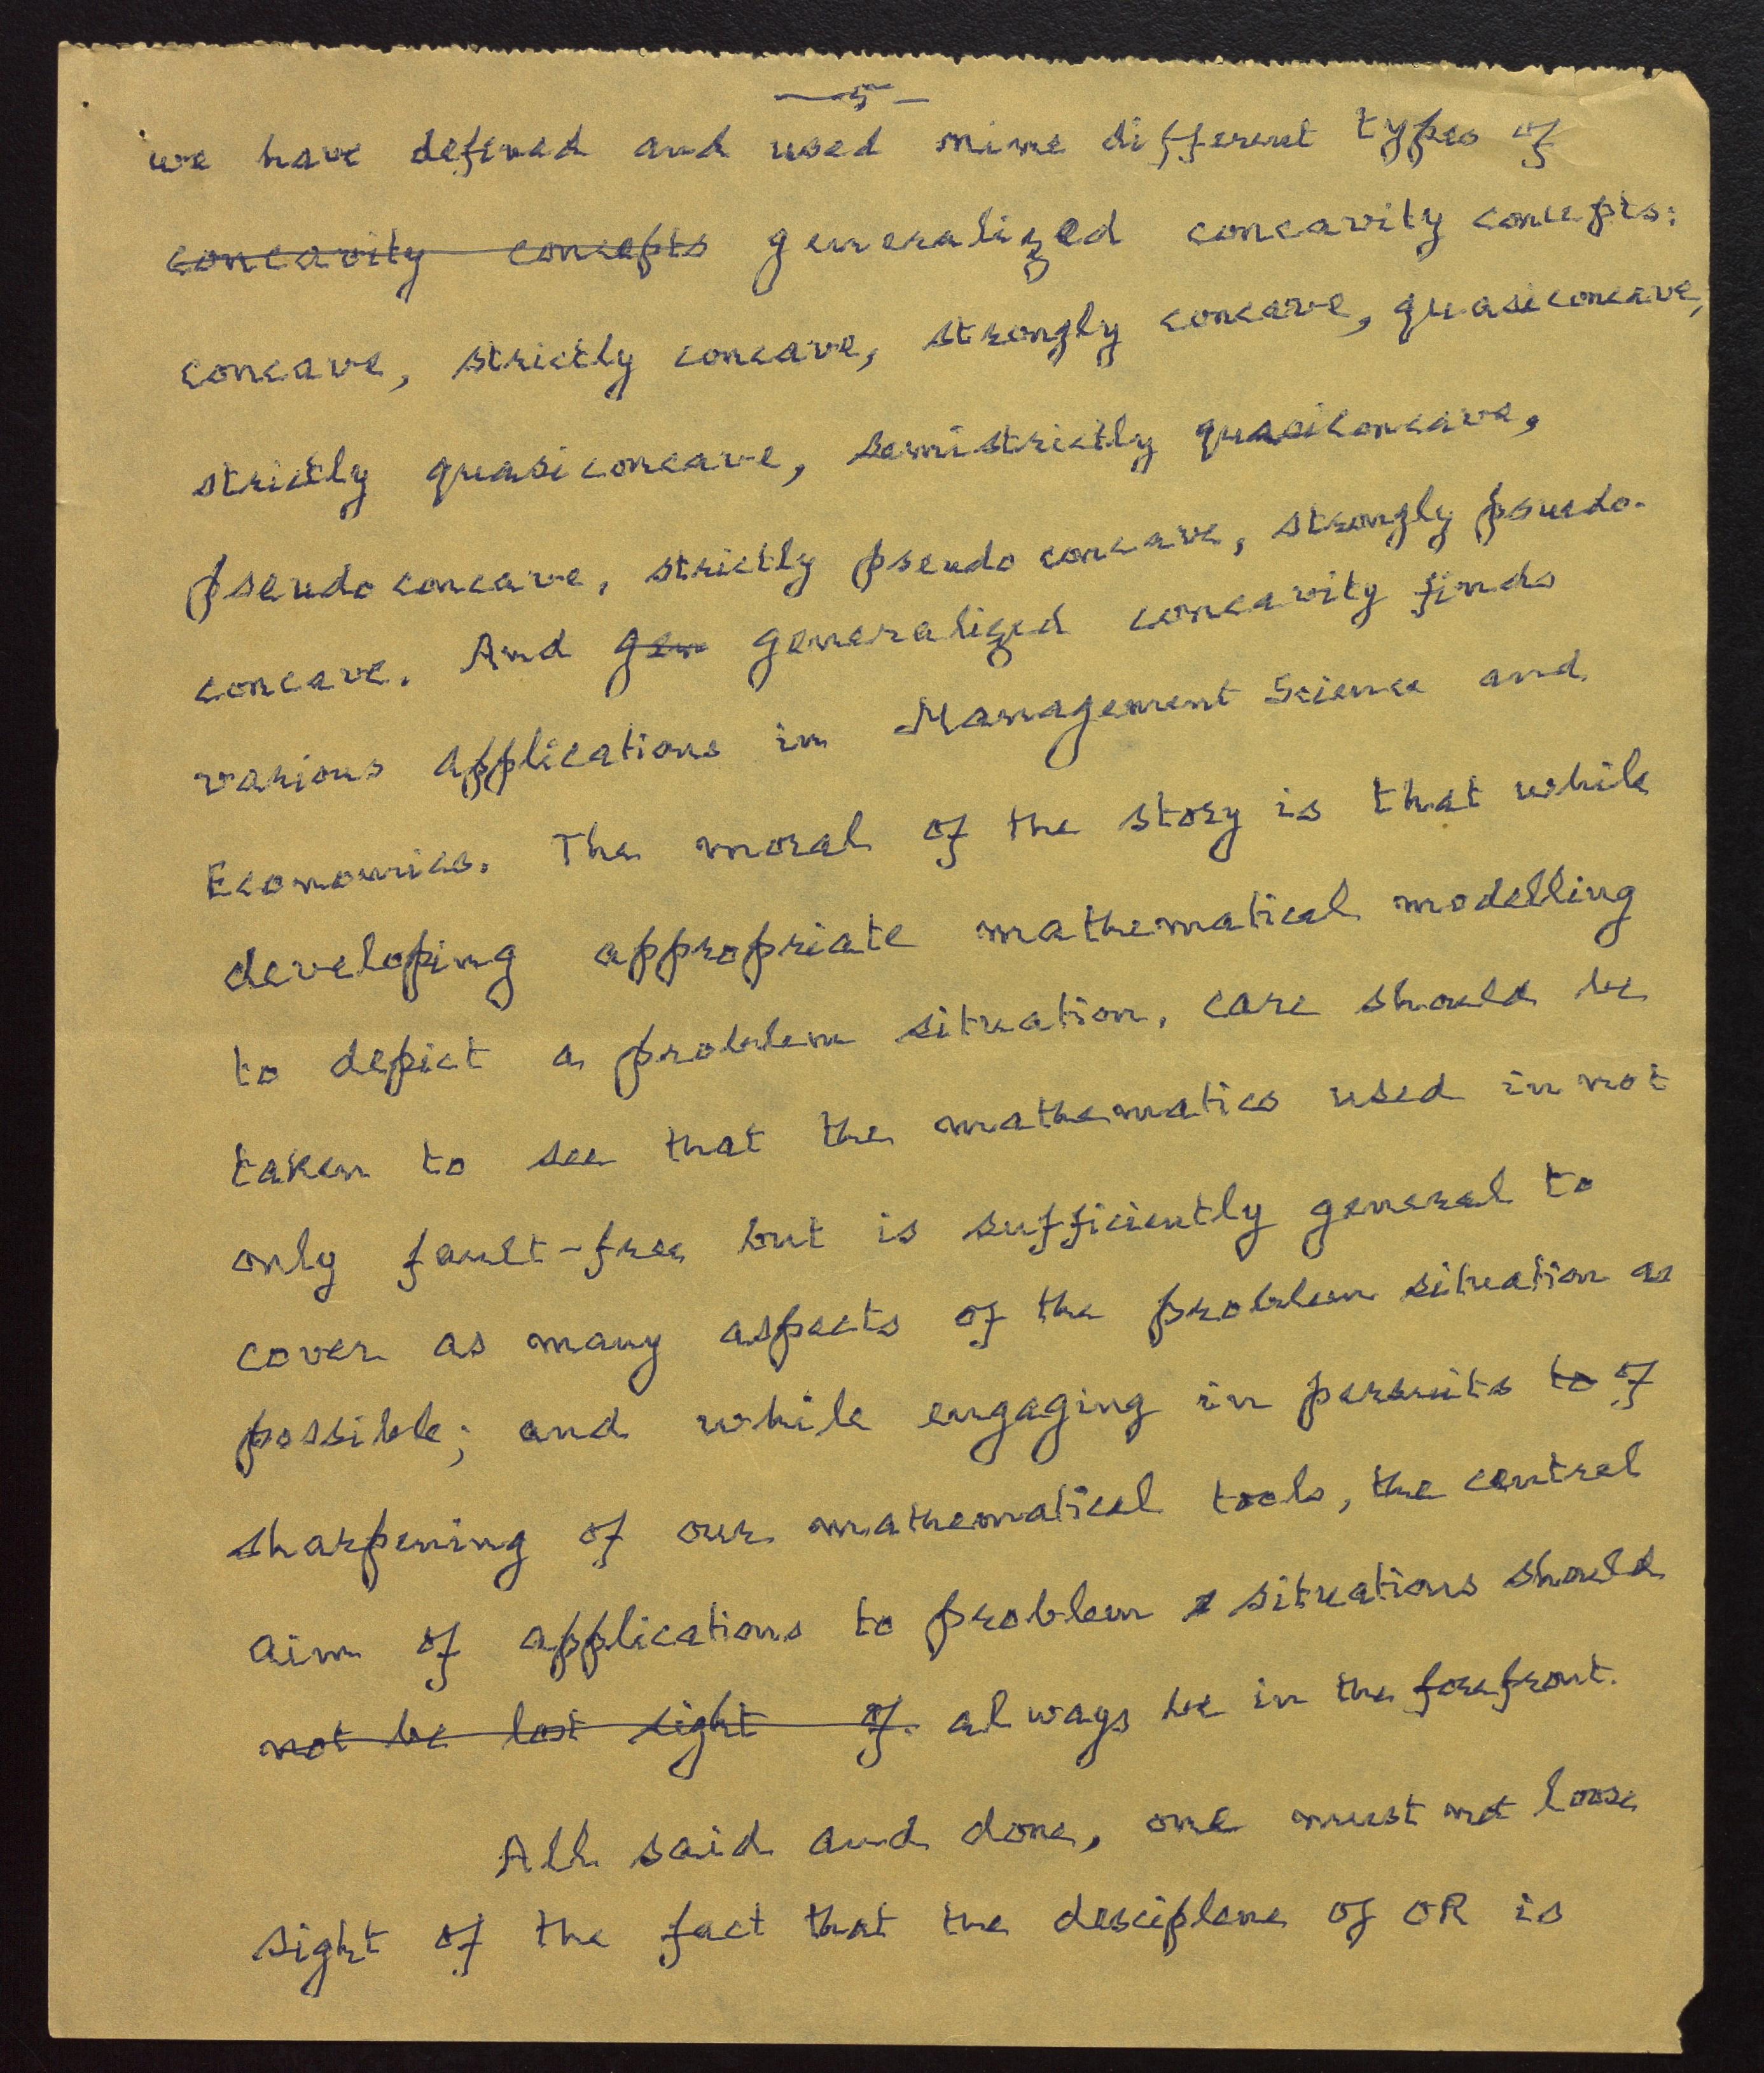 — 5 —
we have defined and used nine different types of
~~concavity concepts~~ generalized concavity concepts:
concave, strictly concave, strongly concave, quasiconcave,
strictly quasiconcave, semistrictly quasiconcave,
pseudoconcave, strictly pseudo concave, strongly pseudo-
concave. And ~~gen~~ generalized concavity finds
various applications in Management Science and
Economics. The moral of the story is that while
developing appropriate mathematical modelling
to depict a problem situation, care should be
taken to see that the mathematics used in not
only fault-free but is sufficiently general to
cover as many aspects of the problem situation as
possible; and while engaging in persuits ~~to~~ of
sharpening of our mathematical tools, the central
aim of applications to problem situations should
~~not be lost sight of.~~ always be in the forefront.
All said and done, one must not loose
sight of the fact that the desciplene of OR is